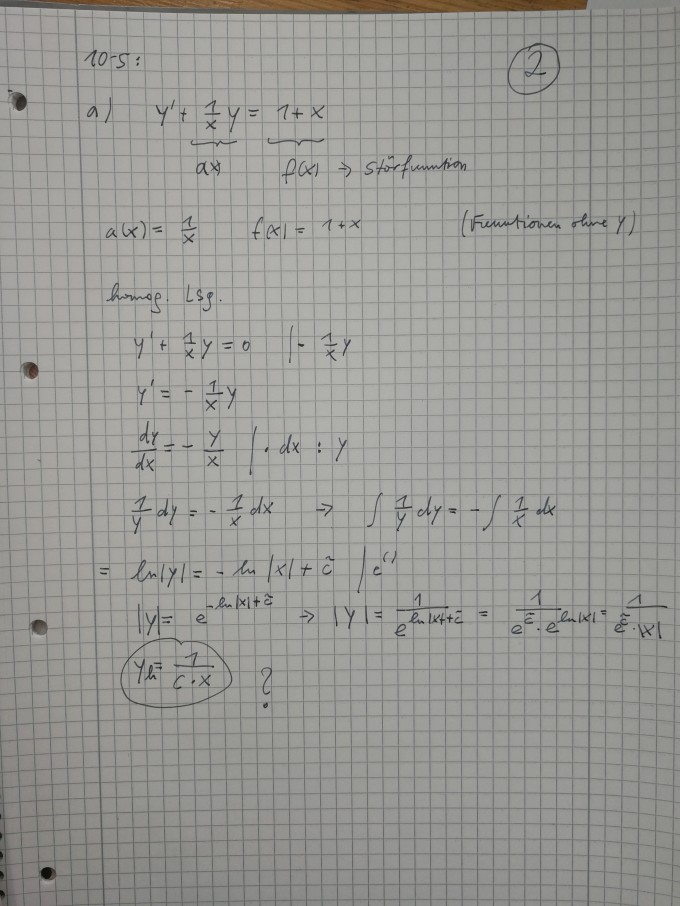 10-5:
2
a) y' + 1/x y = 1+x
a(x) f(x) → Störfunktion
a(x) = 1/x f(x) = 1+x (Funktionen ohne y)
homog. Lsg.
y' + 1/x y = 0 | - 1/x y
y' = - 1/x y
dy/dx = - y/x | · dx : y
1/y dy = - 1/x dx → ∫ 1/y dy = - ∫ 1/x dx
= ln|y| = - ln |x| + c̃ | e^()
|y| = e^(-ln|x|+c̃) → |y| = 1/(e^(ln|x|+c̃)) = 1/(e^c̃ · e^(ln|x|)) = 1/(e^c̃ · |x|)
y_h = 1/(c·x) ?